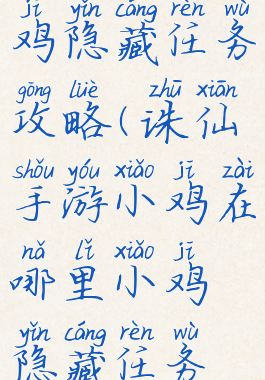 jī yǐn cáng rèn wù
鸡隐藏任务
gōng lüè zhū xiān
攻略(诛仙
shǒu yóu xiǎo jī zài
手游小鸡在
nǎ lǐ xiǎo jī
哪里小鸡
yǐn cáng rèn wù
隐藏任务